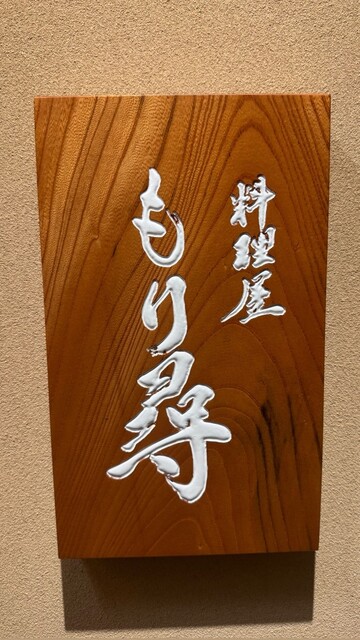 料理屋
もり尋